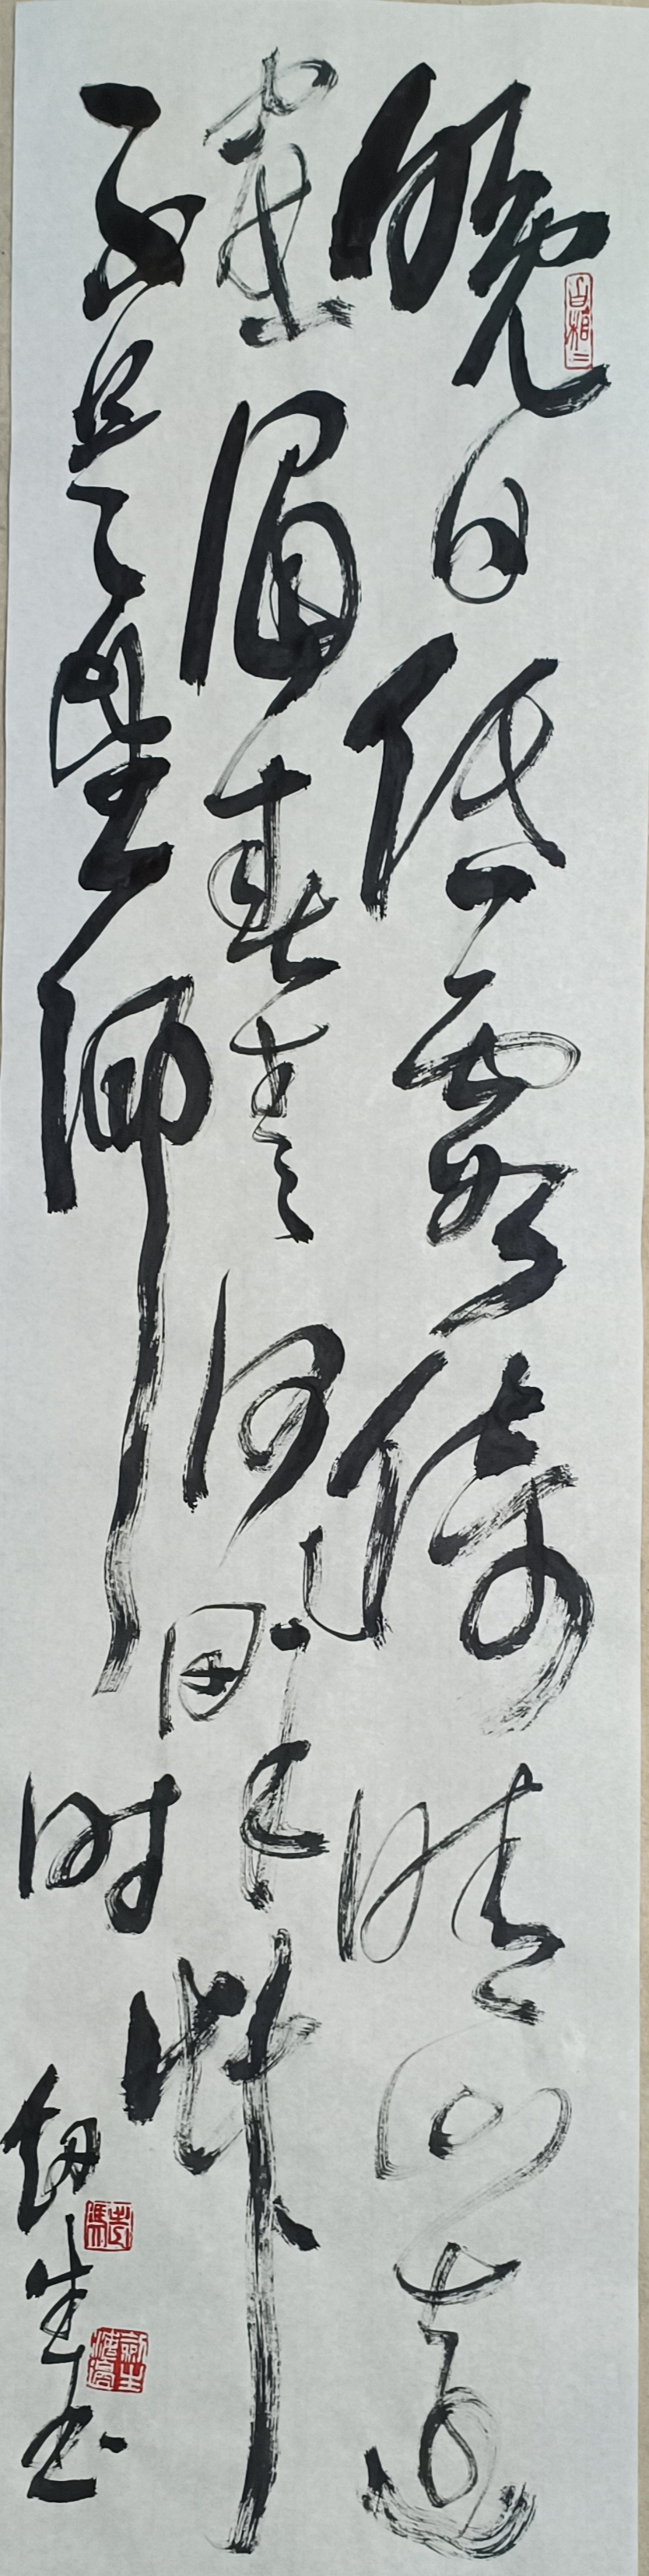 晚日低霞绮晴山远
画眉春青河畔草
不是望乡时
剑生书